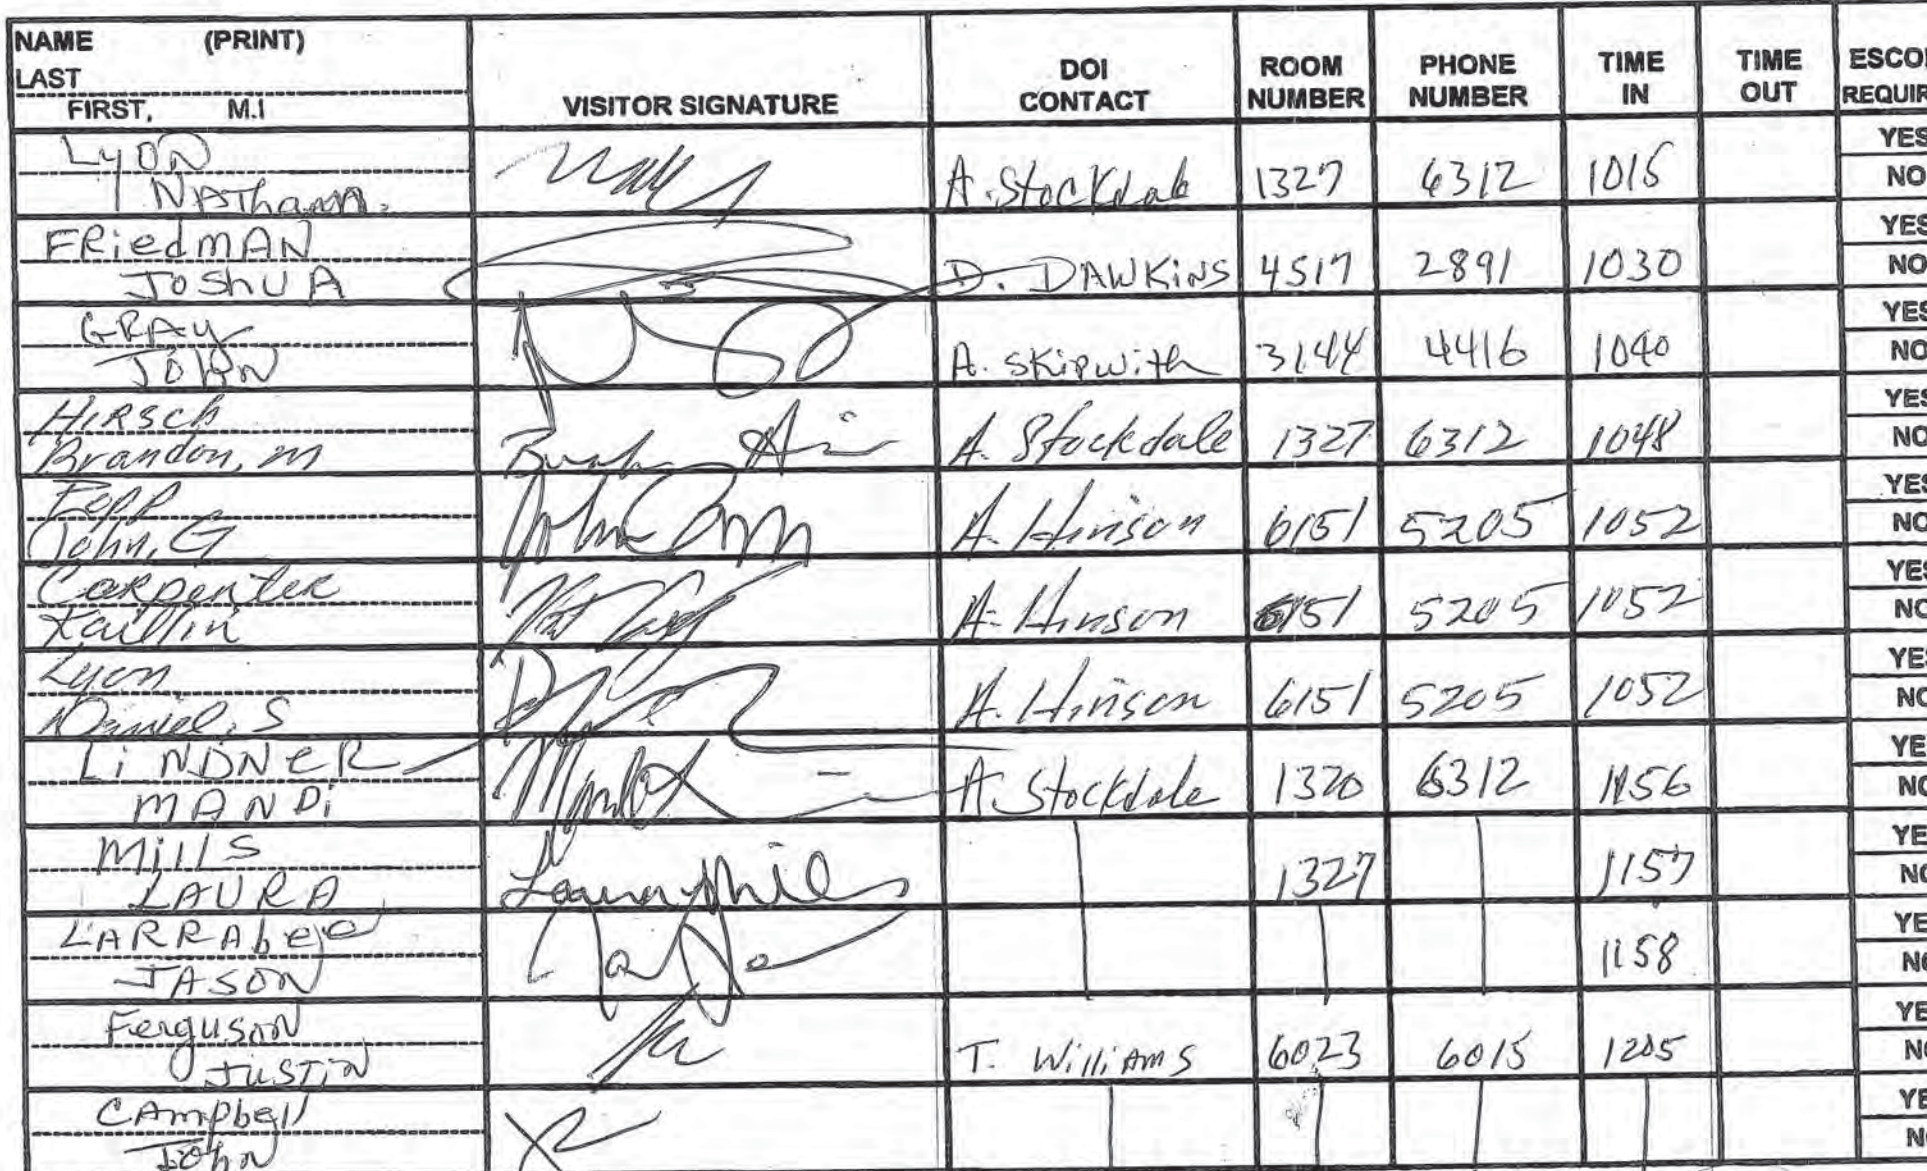 NAME (PRINT)
LAST
FIRST, M.I
VISITOR SIGNATURE
DOI CONTACT
ROOM NUMBER
PHONE NUMBER
TIME IN
TIME OUT
Lyon
NAThan
A. Stockdale 1327 6312 1015
YES
NO
FRiedmAN
JoShUA
D. DAWKiNS 4517 2891 1030
YES
NO
GRAY
JOHN
A. SKipwith 3144 4416 1040
YES
NO
HIRSch
Brandon, m
A. Stockdale 1327 6312 1048
YES
NO
Popp
John, G
A. Hinson 6151 5205 1052
YES
NO
Carpenter
Kaitlin
A. Hinson 6151 5205 1052
YES
NO
Lyon
Daniel, S
A. Hinson 6151 5205 1052
YES
NO
LiNDNER
MANDi
A. Stockdale 1320 6312 1156
YE
NO
Mills
LAURA
Laura Mills
1327 1157
YE
NO
LARRAbee
JASON
1158
YE
NO
Ferguson
JUSTIN
T. Williams 6023 6015 1205
YE
NO
CAmpbell
John
YE
NO